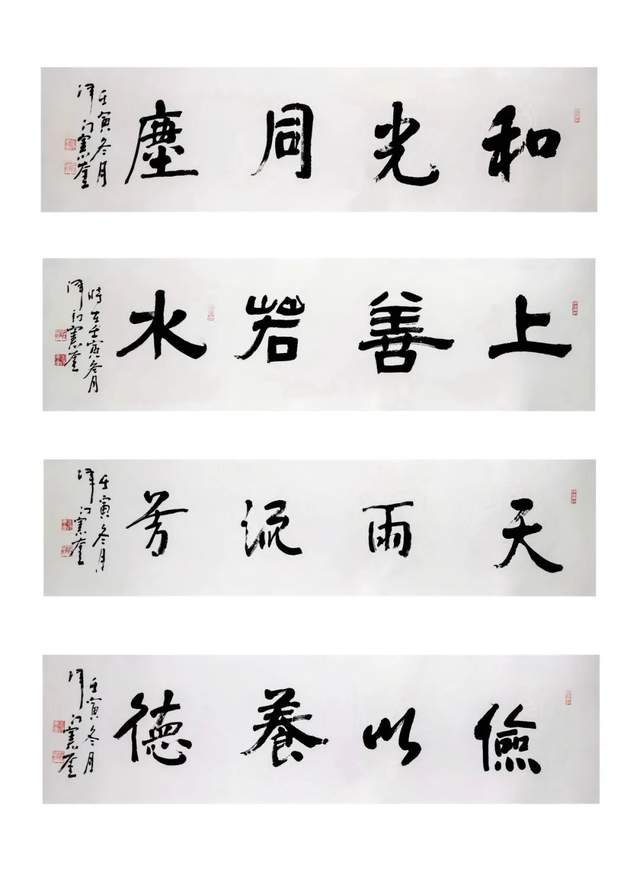 和光同塵
壬寅冬月
上善若水
時在壬寅冬月
天雨流芳
壬寅冬月
儉以養德
壬寅冬月